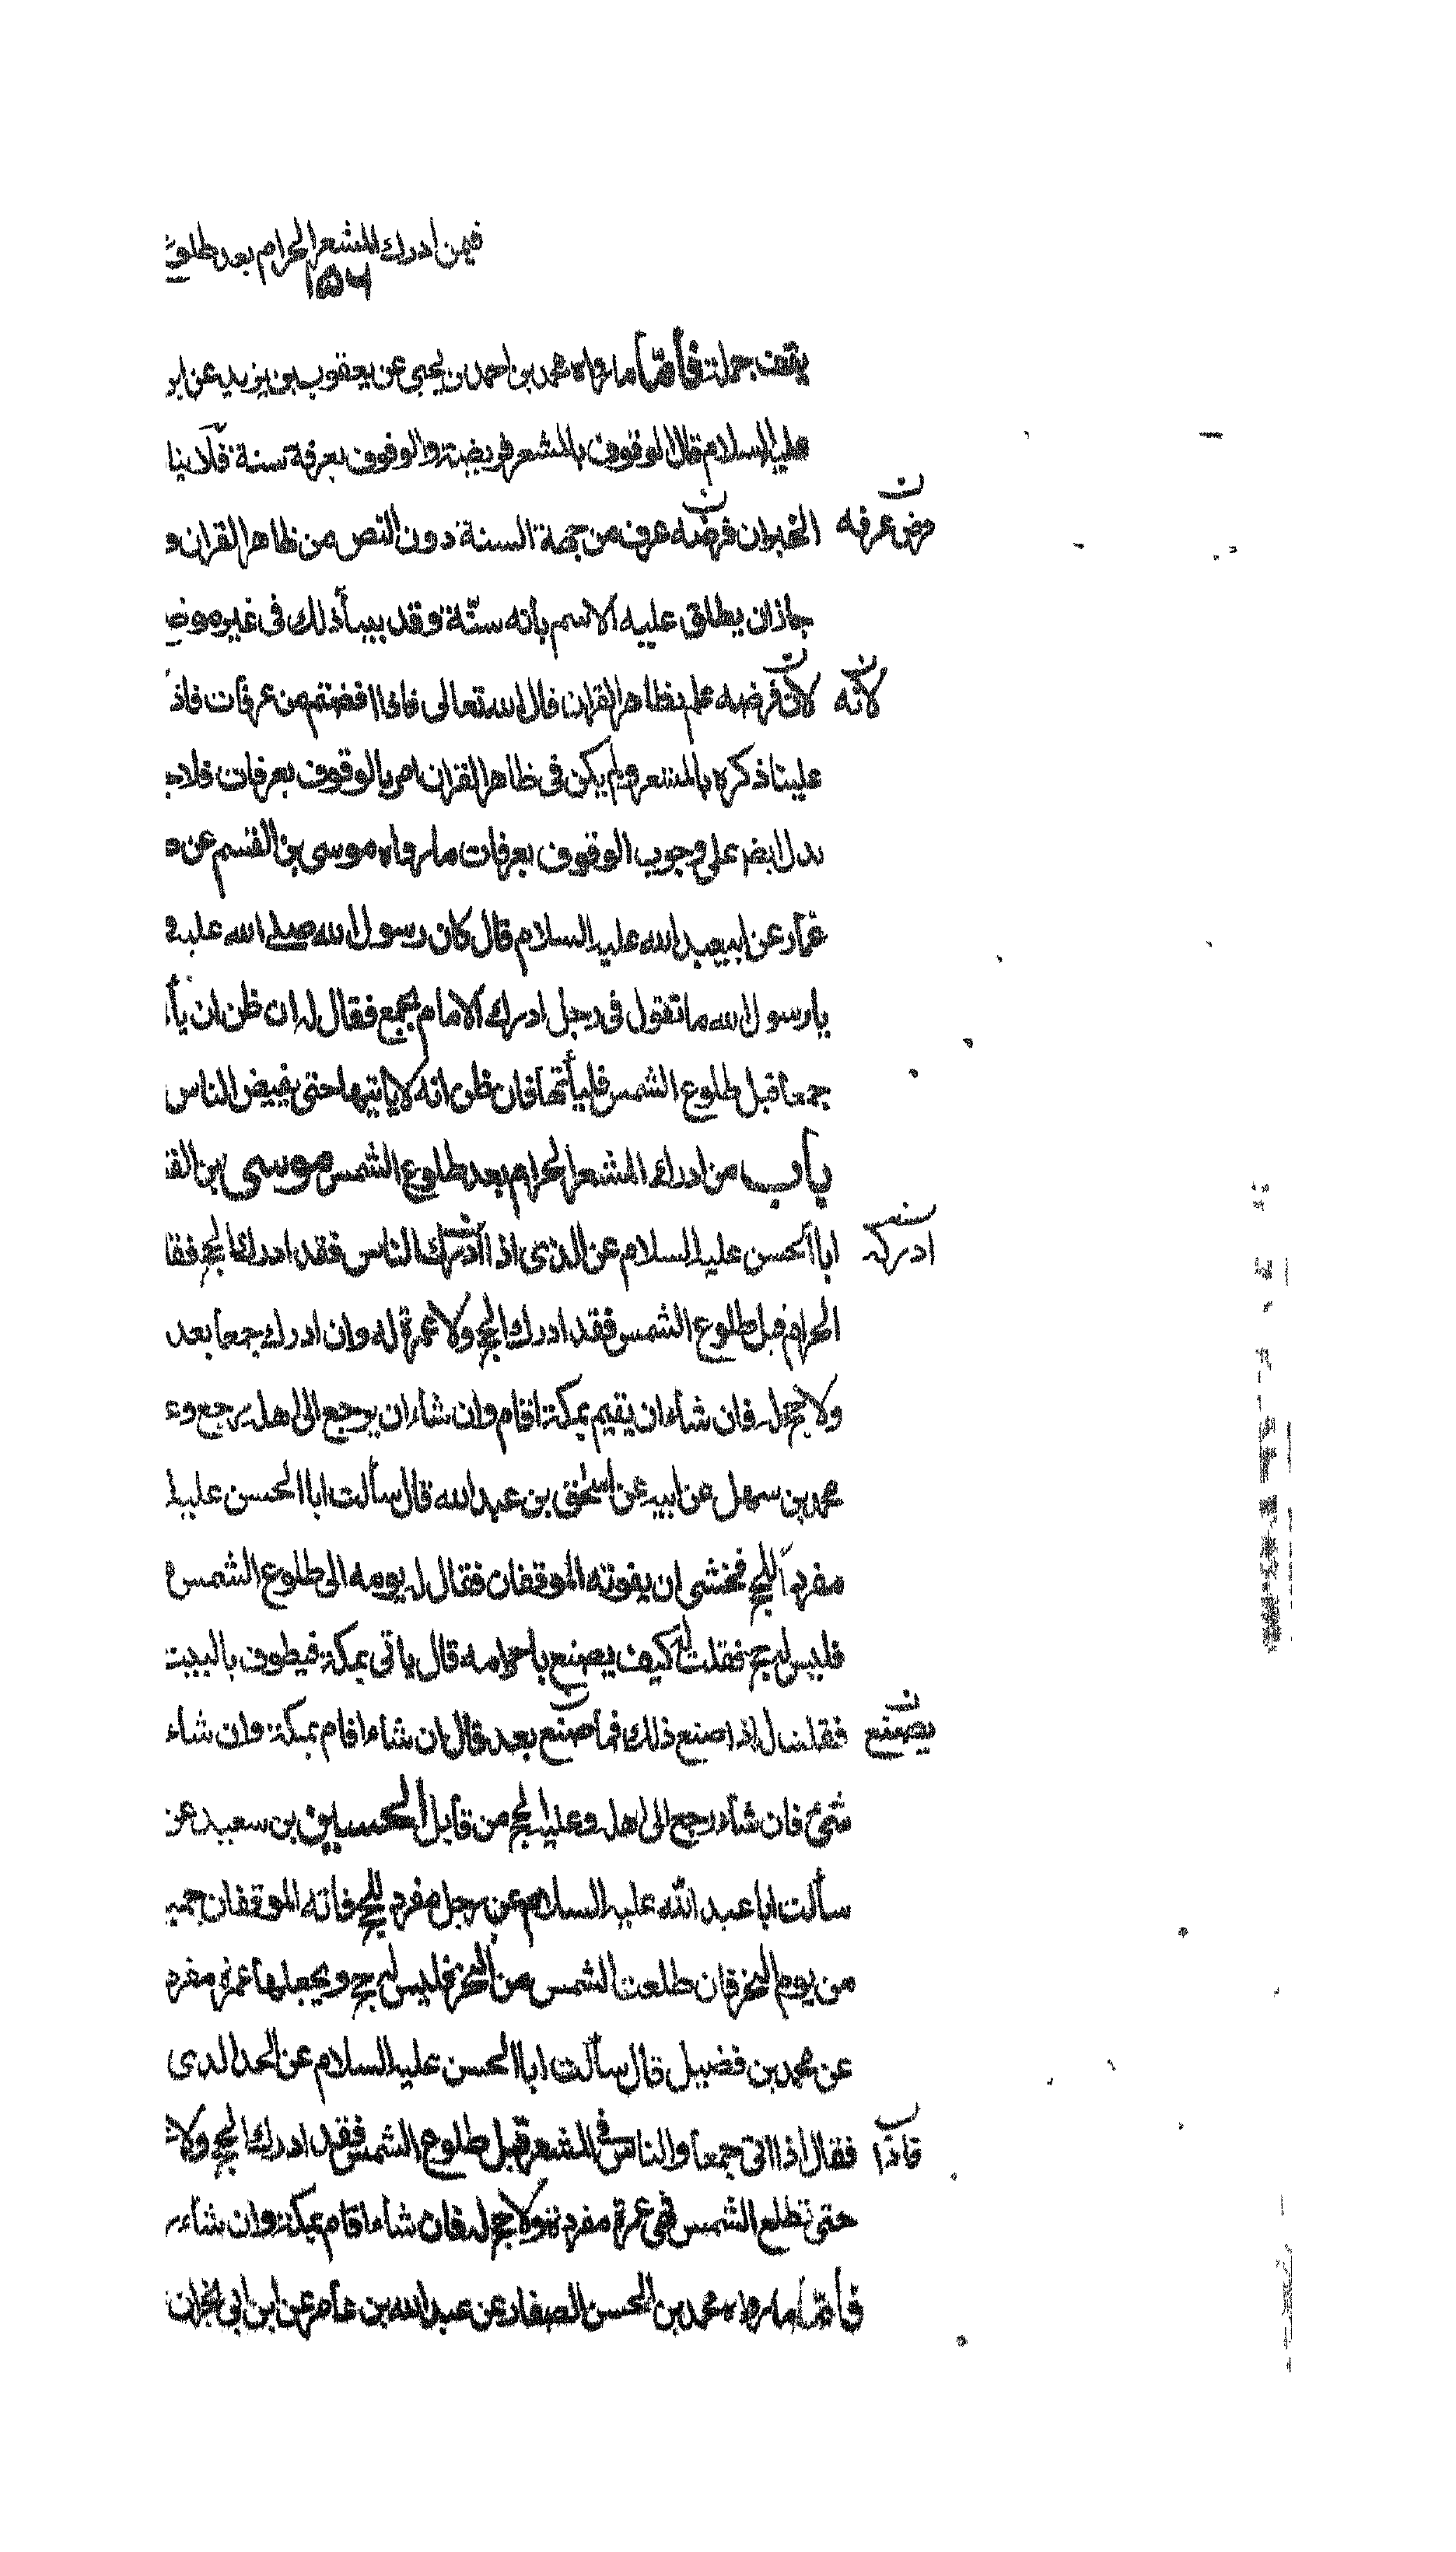 فيمن ادرك المشعر الحرام بعد طلوع
١٥٦
يقف جملة فأمّا ما رواه محمد بن احمد بن يحيى عن يعقوب بن يزيد عن ابن
عليه السلام قال الوقوف بالمشعر فريضة والوقوف بعرفة سنة فلا ينا
الخبر لان فرضه عرف من جهة السنة دون النص من ظاهر القران و
فرض عرفه
جاز ان يطلق عليه الاسم بانه سنّة وقد بينا ذلك فى غير موضع
لان فرضه علم بظاهر القران قال الله تعالى فاذا افضتم من عرفات فاذ
لانّه
علينا ذكره بالمشعر ولم يكن فى ظاهر القران امر بالوقوف بعرفات فلا
يدل ايضا على وجوب الوقوف بعرفات ما رواه موسى بن القسم عن
عمّار عن ابيعبدالله عليه السلام قال كان رسول الله صلى الله عليه و
يا رسول الله ما تقول فى رجل ادرك الامام بجمع فقال له ان ظن ان يأ
جمعا قبل طلوع الشمس فليأتها فان ظن انه لا ياتيها حتى يفيض الناس
باب من ادرك المشعر الحرام بعد طلوع الشمس موسى بن الق
ابا الحسن عليه السلام عن الذى اذا ادرك الناس فقد ادرك الحج فقا
ادركه
الحرام قبل طلوع الشمس فقد ادرك الحج ولا عمرة له وان ادرك جمعا بعد
ولا حج له فان شاء ان يقيم بمكة اقام وان شاء ان يرجع الى اهله رجع وع
محمد بن سهل عن ابيه عن اسحق بن عبدالله قال سألت ابا الحسن عليه ا
مفرد للحج فخشى ان يفوته الموقفان فقال له يومه الى طلوع الشمس
فليس له حج فقلت له كيف يصنع باحرامه قال ياتى بمكة فيطوف بالبيت
فقلت له اذا صنع ذلك فما صنع بعد قال ان شاء اقام بمكة وان شاء
يصنع
شئ فان شاء رجع الى اهله وعليه الحج من قابل الحسين بن سعيد عن
سألت ابا عبد الله عليه السلام عن رجل مفرد للحج فاته الموقفان جمي
من يوم النحر فان طلعت الشمس من النحر فليس له حج ويجعلها عمرة مفرد
عن محمد بن فضيل قال سألت ابا الحسن عليه السلام عن الحد الذى
فقال اذا اتى جمعا والناس فى المشعر قبل طلوع الشمس فقد ادرك الحج ولا ع
فاذا
حتى تطلع الشمس فهى عمرة مفردة ولا حج له فان شاء اقام بمكة وان شاء ر
فأمّا ما رواه محمد بن الحسن الصفار عن عبد الله بن عامر عن ابن ابى نجران